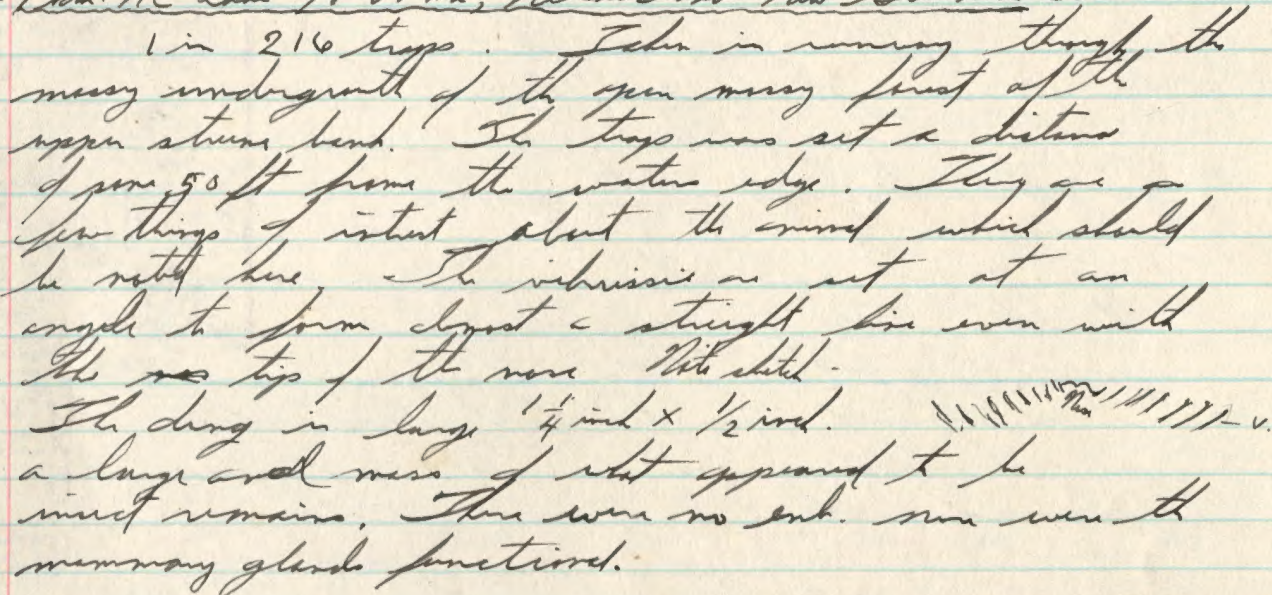 1 in 216 traps. Taken in runway through the
mossy undergrowth of the open mossy forest of the
upper stream bank. The traps was set a distance
of some 50 ft from the waters edge. They are a
few things of intrest about the animal which should
be noted here. The vibrissie are set at an
angle to form almost a straight line even with
the tip of the nose Note sketch -
The dung is large 1 1/4 inch x 1/2 inch. Nose v.
a large mass of what appeared to be
insect remains. There were no emb. nore were the
mammary glands functional.